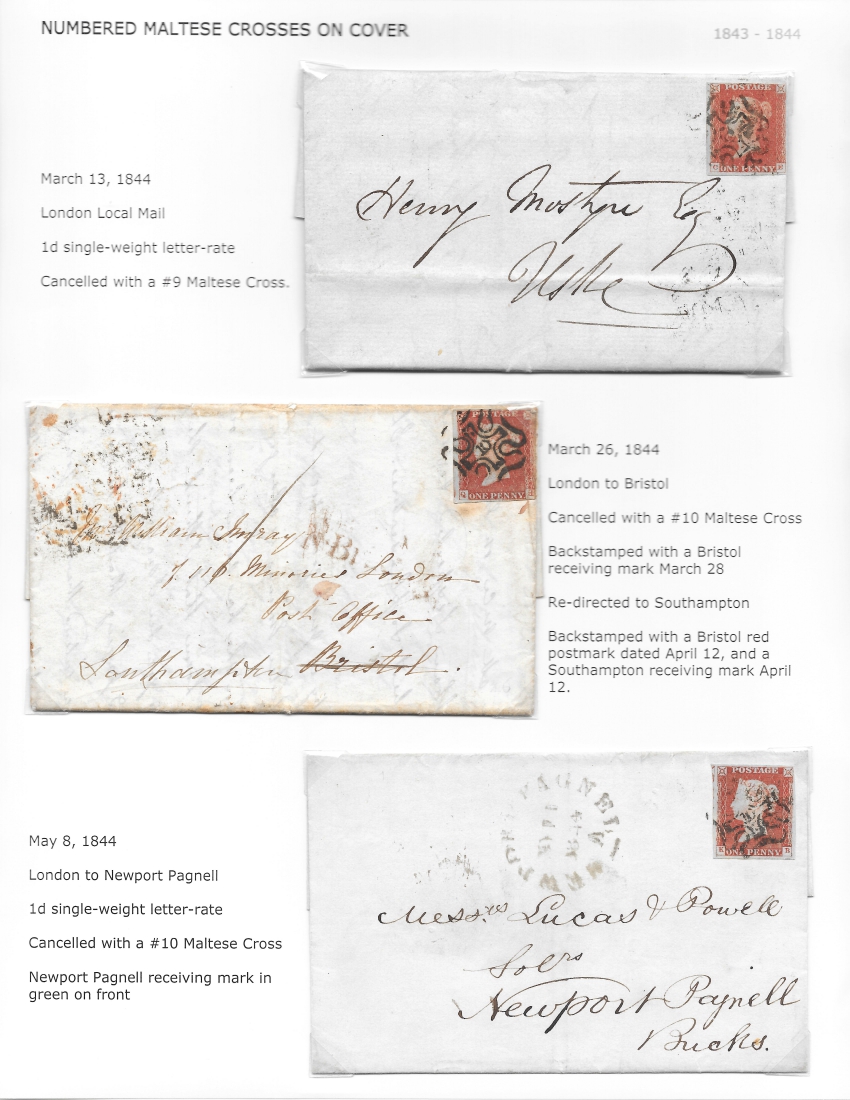 NUMBERED MALTESE CROSSES ON COVER
1843 - 1844
March 13, 1844
London Local Mail
1d single-weight letter-rate
Cancelled with a #9 Maltese Cross.
POSTAGE
ONE PENNY
Henry Mostyn Esq
Uske
March 26, 1844
London to Bristol
Cancelled with a #10 Maltese Cross
Backstamped with a Bristol
receiving mark March 28
Re-directed to Southampton
Backstamped with a Bristol red
postmark dated April 12, and a
Southampton receiving mark April
12.
POSTAGE
10
ONE PENNY
William Imray
Minories London
Post Office
Southampton Bristol.
May 8, 1844
London to Newport Pagnell
1d single-weight letter-rate
Cancelled with a #10 Maltese Cross
Newport Pagnell receiving mark in
green on front
NEWPORT PAGNELL
POSTAGE
K B
ONE PENNY
Messrs Lucas & Powell
Solrs
Newport Pagnell
Bucks.